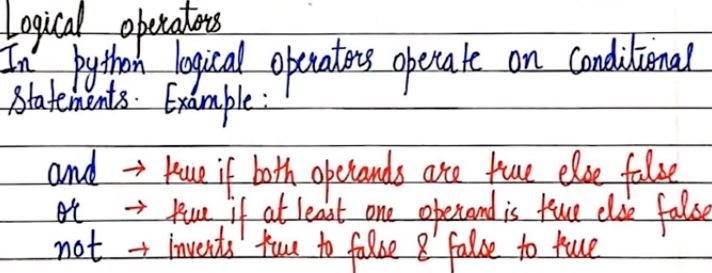 Logical operators
In python logical operators operate on Conditional
Statements. Example:
and → true if both operands are true else false
or → true if at least one operand is true else false
not → inverts true to false & false to true